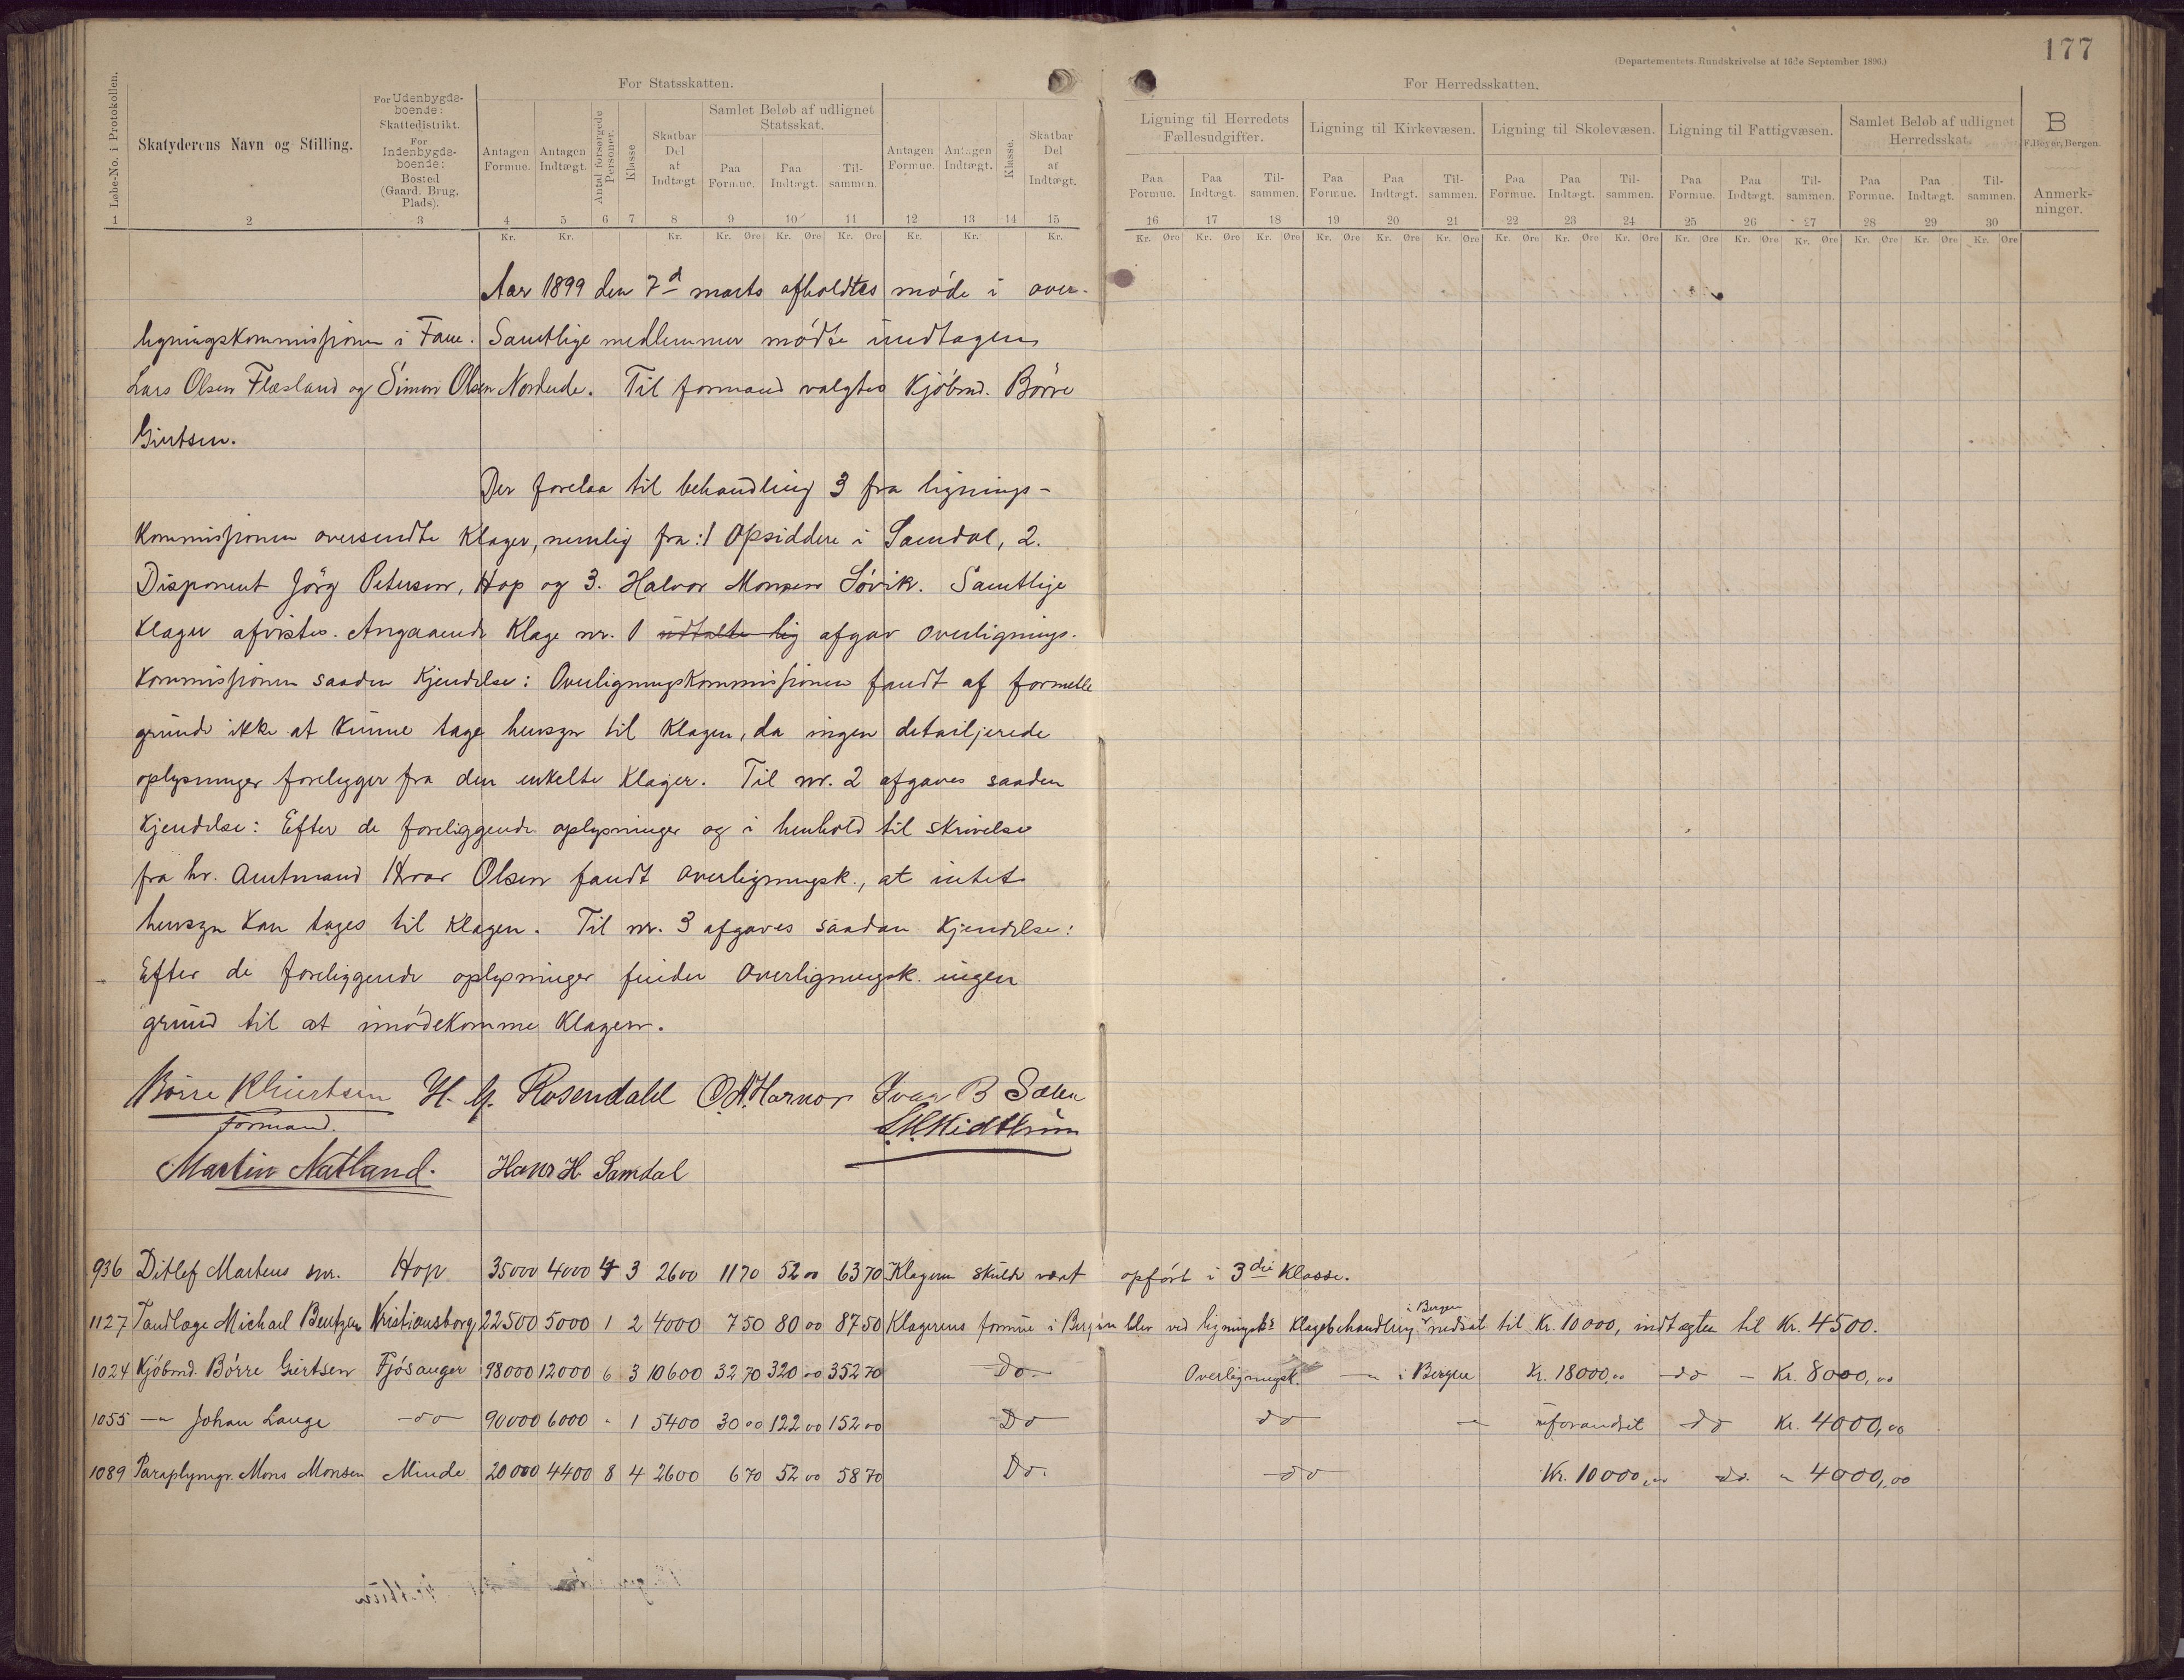 177
(Departementets Rundskrivelse af 16de September 1896.)
For Statsskatten.
For Herredsskatten.
Løbe-No. i Protokollen.
Skatyderens Navn og Stilling.
For Udenbygds-
boende:
Skattedistrikt.
For
Indenbygds-
boende:
Bosted
(Gaard. Brug.
Plads).
Antagen Formue.
Antagen Indtægt.
Antal forsørgede Personer.
Klasse
Skatbar Del af Indtægt
Samlet Beløb af udlignet Statsskat.
Paa Formue.
Paa Indtægt.
Til-sammen.
Antagen Formue.
Antagen Indtægt.
Klasse.
Skatbar Del af Indtægt.
Ligning til Herredets Fællesudgifter.
Ligning til Kirkevæsen.
Ligning til Skolevæsen.
Ligning til Fattigvæsen.
Samlet Beløb af udlignet Herredsskat.
B
F. Beyer, Bergen.
Paa Formue. Paa Indtægt. Til-sammen. Paa Formue. Paa Indtægt. Til-sammen. Paa Formue. Paa Indtægt. Til-sammen. Paa Formue. Paa Indtægt. Til-sammen. Paa Formue. Paa Indtægt. Til-sammen.
Anmerk-
ninger.
1 2 3 4 5 6 7 8 9 10 11 12 13 14 15 16 17 18 19 20 21 22 23 24 25 26 27 28 29 30
Kr. Kr. Kr. Kr. Øre Kr. Øre Kr. Øre Kr. Kr. Kr. Kr. Øre Kr. Øre Kr. Øre Kr. Øre Kr. Øre Kr. Øre Kr. Øre Kr. Øre Kr. Øre Kr. Øre Kr. Øre Kr. Øre Kr. Øre Kr. Øre Kr. Øre
Aar 1899 den 7d marts afholdtes møde i over-
ligningskommissionen i Fane. Samtlige medlemmer mødte undtagen
Lars Olsen Flæsland og Simon Olsen Nordeide. Til formand valgtes Kjøbmd. Börre
Giertsen.
Der forelaa til behandling 3 fra lignings-
kommissionen oversendte klager, nemlig fra: 1 Opsiddere i Samdal, 2.
Disponent Jörg Petersen, Hop og 3. Halvor Monsen Søvik. Samtlige
klager afvistes. Angaaende klage nr. 1 udtalte sig afgav overlignings-
kommissionen saaden kjendelse: Overligningskommissionen fandt af formelle
grunde ikke at kunne tage hensyn til klagen, da ingen detailjerede
oplysninger foreligger fra den enkelte klager. Til nr. 2 afgaves saaden
kjendelse: Efter de foreliggende oplysninger og i henhold til skrivelse
fra hr. Amtmand Hroar Olsen fandt overligningsk., at intet
hensyn kan tages til klagen. Til nr. 3 afgaves saadan kjendelse:
Efter de foreliggende oplysninger finder Overligningsk. ingen
grund til at imødekomme klagen.
Börre Giertsen H. G. Rosendahl O. A. Hamor Ivar B Sælen
Formand.
Midttun
Martin Natland. Hans H. Samdal
936 Ditlef Martens snr. Hop 35000 4000 4 3 2600 11 70 52 00 63 70 Klageren skulde vært opført i 3die klasse.
1127 Tandlæge Michael Bentzen Kristiansborg 22500 5000 1 2 4000 7 50 80 00 87 50 Klagerens formue i Bergen blev ved ligningsk's klagebehandling i Bergen nedsat til Kr. 10000, indtægten til Kr. 4500.
1024 Kjöbmd. Börre Giertsen Fjösanger 98000 12000 6 3 10600 32 70 320 00 352 70 Do- Overligningsk. —"— i Bergen Kr. 18000,00 -do- Kr. 8000,00
1055 —"— Johan Lange -do- 90000 6000 " 1 5400 30 00 122 00 152 00 Do do —"— uforandret do Kr. 4000,00
1089 Paraplymgr. Mons Monsen Minde 20000 4400 8 4 2600 6 70 52 00 58 70 Do. -do- Kr. 10000,00 do. " 4000,00